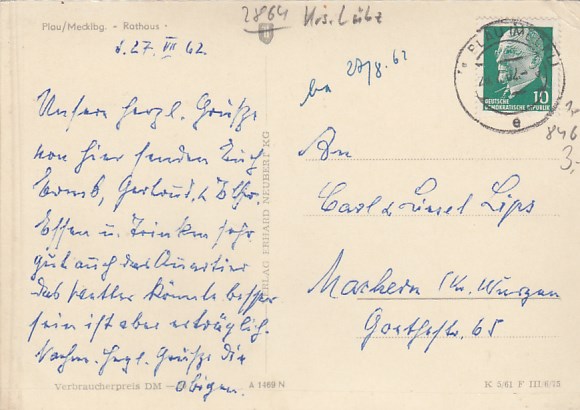 Plau/Mecklbg. - Rathaus -
2864 Krs. Lübz
d. 27. VII 62.
Unsere herzl. Grüsse
von hier senden Euch
Gertrud, &
Essen u. Trinken sehr
gut auch das Quartier
das Wetter könnte besser
sein ist aber erträglich.
Nochm. herzl. Grüsse die
obigen.
Verbraucherpreis DM —
A 1469 N
VERLAG ERHARD NEUBERT KG
PLAU (MECKL)
e
DEUTSCHE
DEMOKRATISCHE REPUBLIK
10
846
3,-
be 27/8. 62
An
Carl & Liesel Lips
Machern Kr. Wurzen
Goethestr. 65
K 5/61 F III/6/73